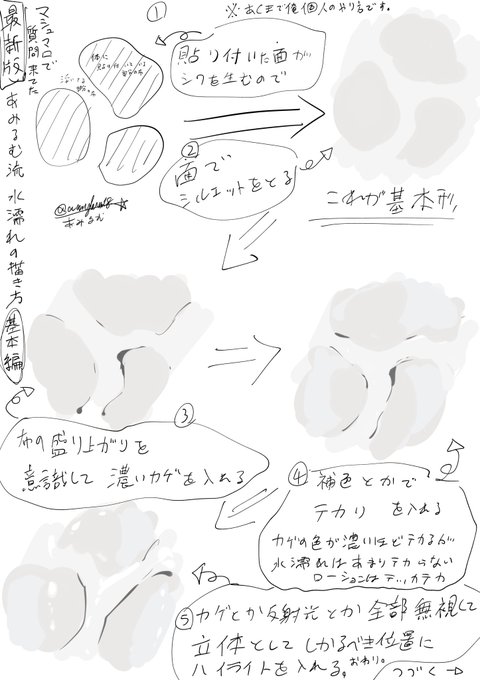 ※あくまで俺個人のやり方です。
マシュマロで
質問来てた
最新版
あみるむ流 水濡れの描き方
基本編
①
貼り付いた面が
シワを生むので
体に
貼り付いている
部分
②
面で
シルエットをとる
これが基本形
あみるむ
③
布の盛り上がりを
意識して 濃いカゲを入れる
④
補色とかで
テカリ を入れる
カゲの色が濃いほどテカるが
水濡れはあまりテカらない
ローションはテッカテカ
⑤
カゲとか反射光とか全部無視して
立体として しかるべき位置に
ハイライトを入れる。おわり。
つづく→